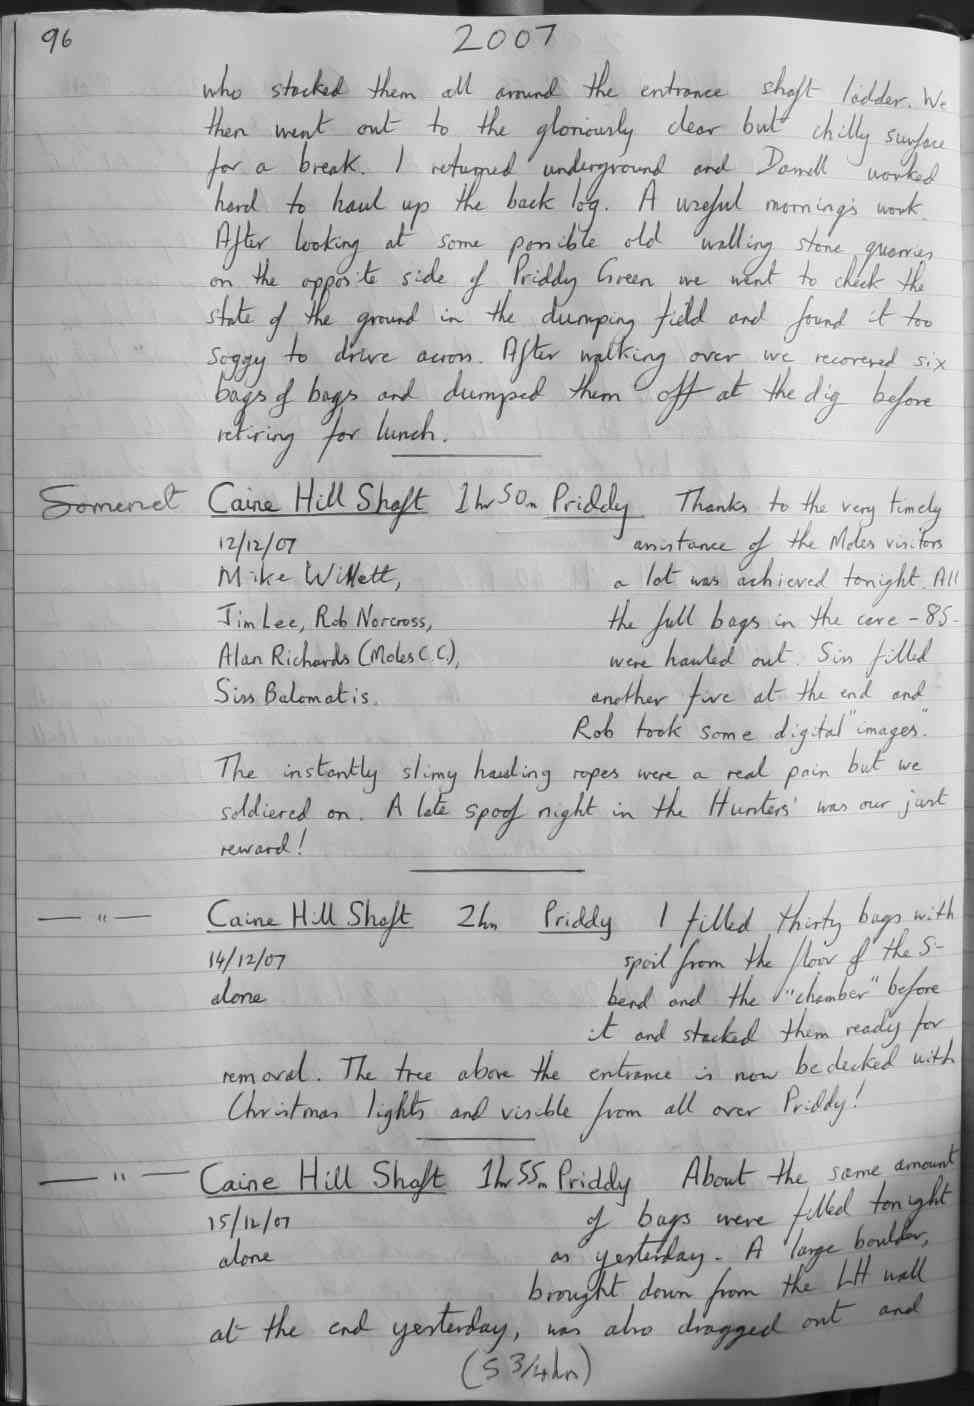 96
2007
who stacked them all around the entrance shaft ladder. We
then went out to the gloriously clear but chilly surface
for a break. I returned underground and Darrell worked
hard to haul up the back log. A useful morning's work.
After looking at some possible old walling stone quarries
on the opposite side of Priddy Green we went to check the
state of the ground in the dumping field and found it too
soggy to drive across. After walking over we recovered six
bags of bags and dumped them off at the dig before
retiring for lunch.
Somerset Caine Hill Shaft 1hr 50m Priddy Thanks to the very timely
12/12/07 assistance of the Moles visitors
Mike Willett, a lot was achieved tonight. All
Jim Lee, Rob Norcross, the full bags in the cave - 85 -
Alan Richards (Moles C.C.), were hauled out. Siss filled
Siss Balomatis. another five at the end and
Rob took some digital "images".
The instantly slimy hauling ropes were a real pain but we
soldiered on. A late spoof night in the Hunters' was our just
reward!
— " — Caine Hill Shaft 2hrs Priddy I filled thirty bags with
14/12/07 spoil from the floor of the S-
alone bend and the "chamber" before
it and stacked them ready for
removal. The tree above the entrance is now bedecked with
Christmas lights and visible from all over Priddy!
— " — Caine Hill Shaft 1hr 55m Priddy About the same amount
15/12/07 of bags were filled tonight
alone as yesterday. A large boulder,
brought down from the LH wall
at the end yesterday, was also dragged out and
(5 3/4 hrs)